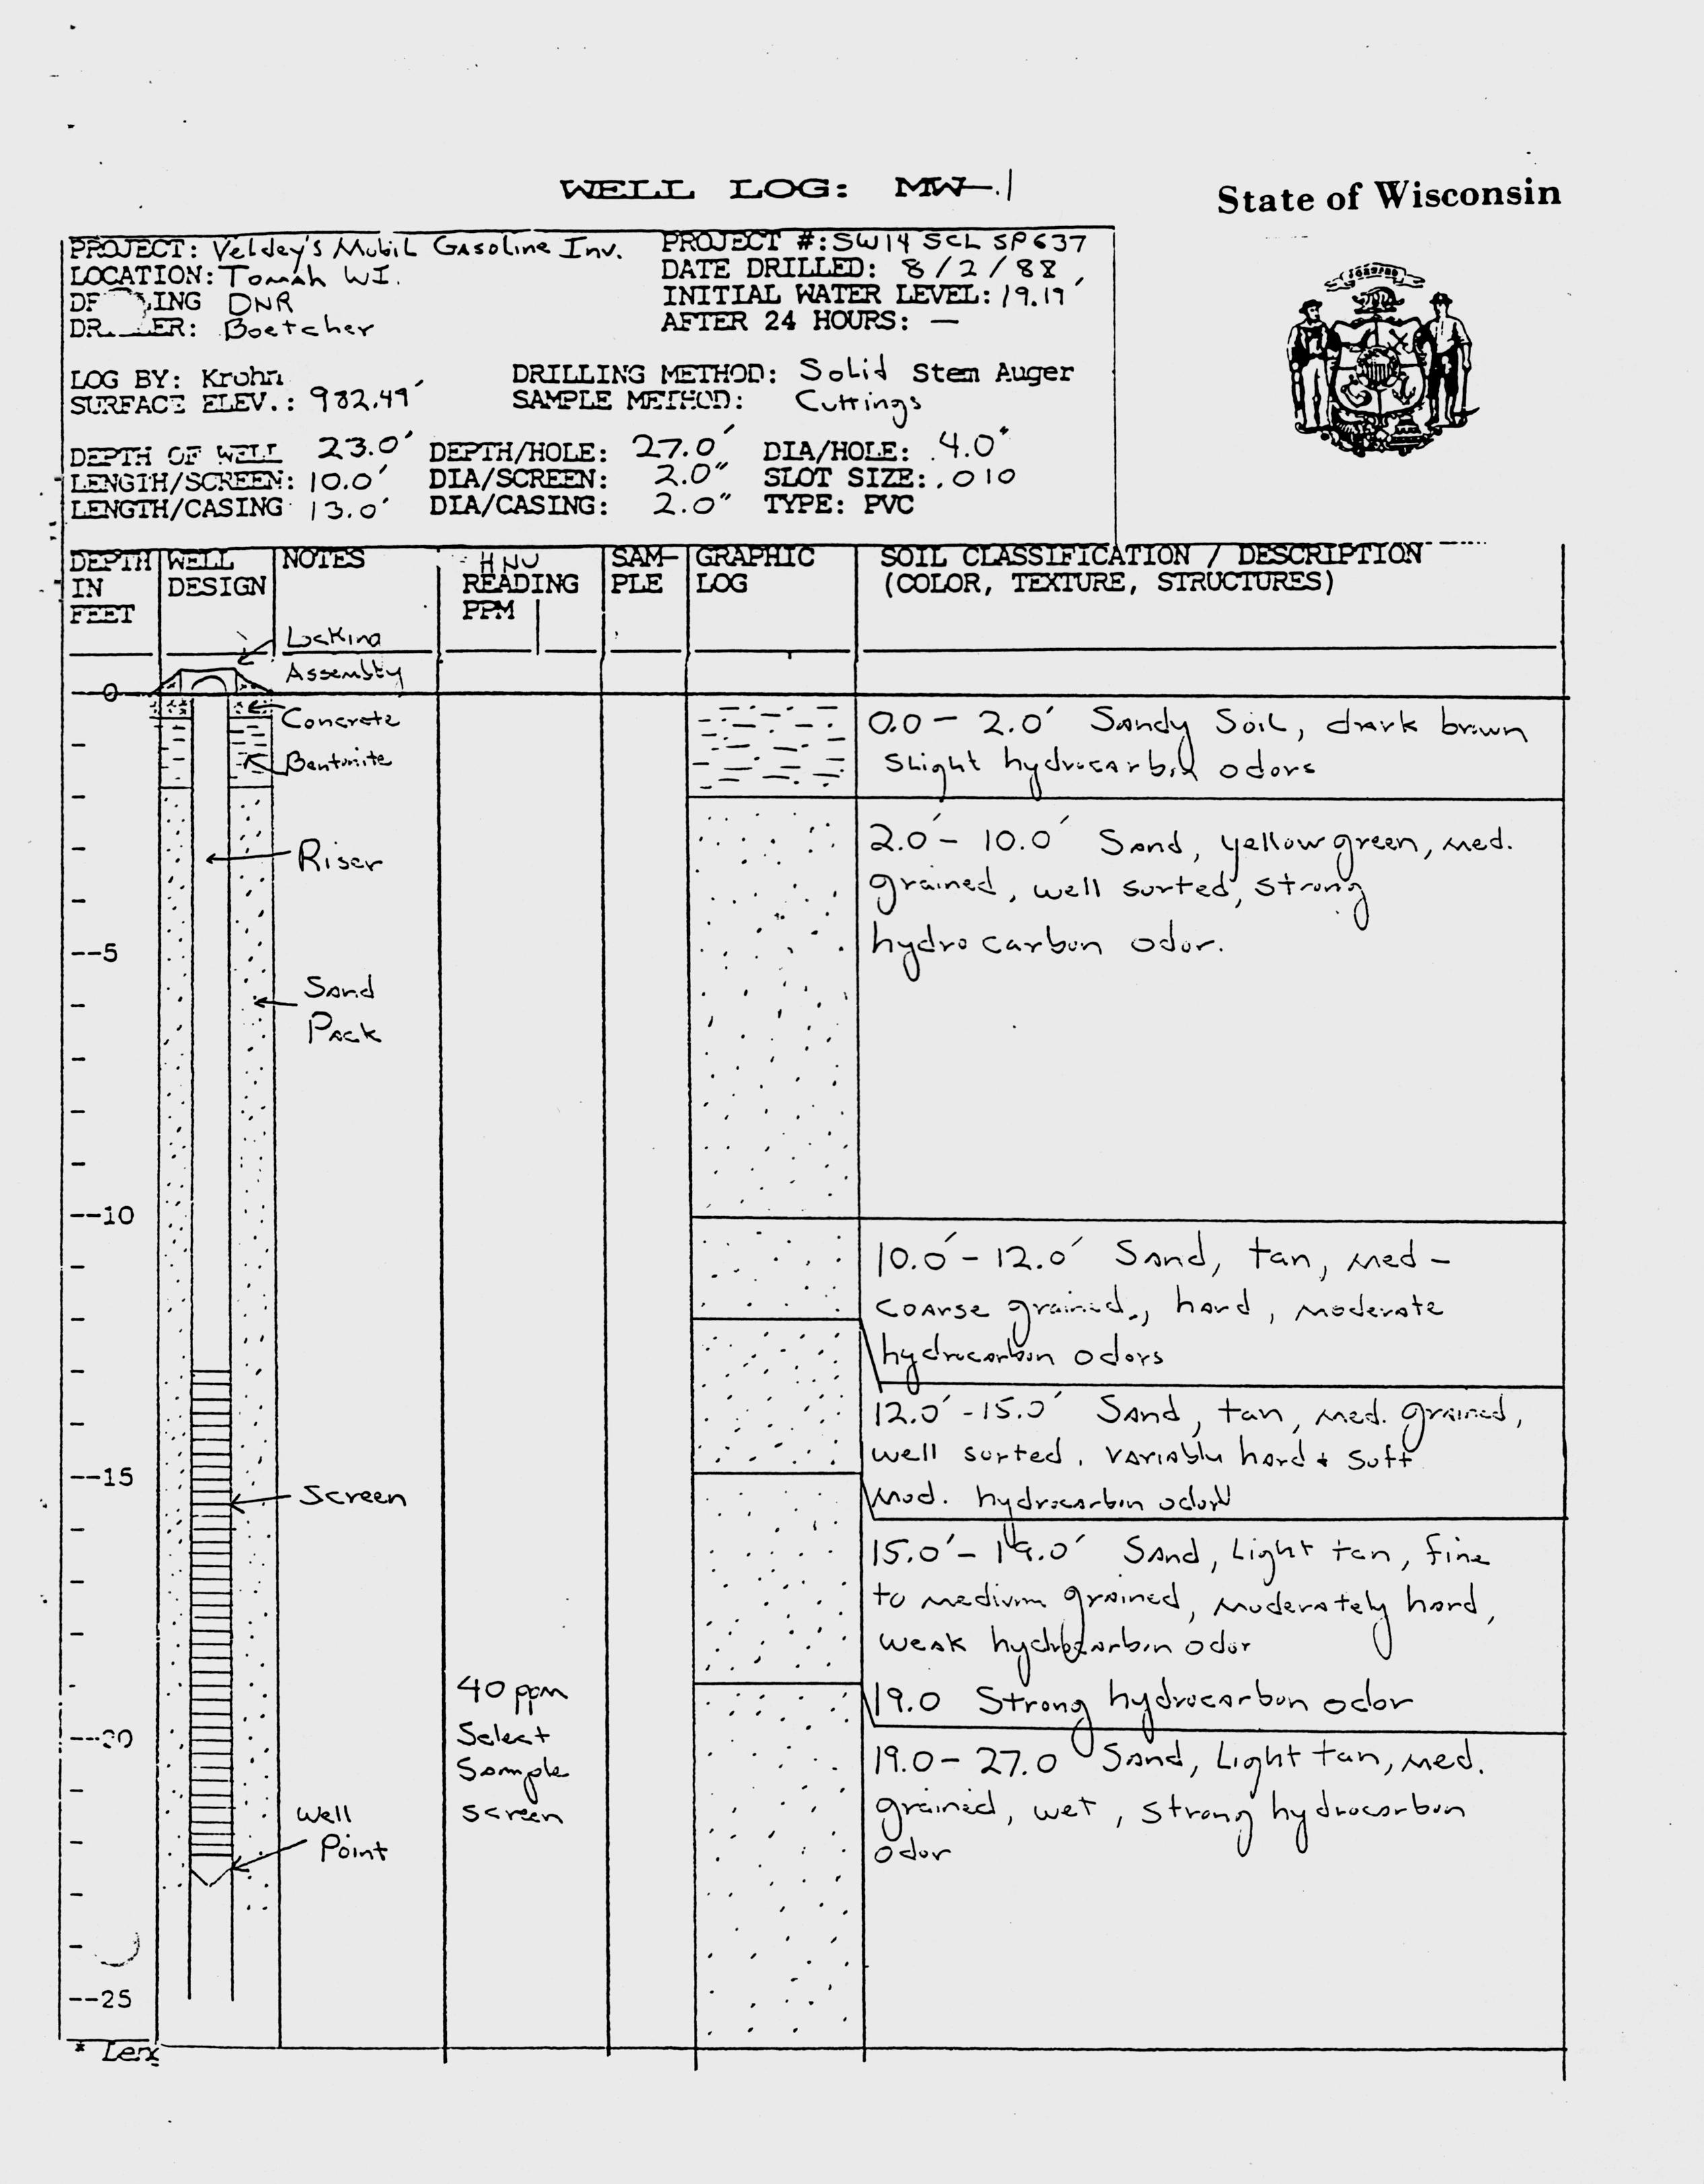 WELL LOG: MW-1
State of Wisconsin
PROJECT: Veldey's Mobil Gasoline Inv. PROJECT #: SW14 SCL SP637
LOCATION: Tomah WI. DATE DRILLED: 8/2/88
ING DNR INITIAL WATER LEVEL: 19.19'
ER: Boetcher AFTER 24 HOURS: —
LOG BY: Krohn DRILLING METHOD: Solid Stem Auger
SURFACE ELEV.: 982.49' SAMPLE METHOD: Cuttings
DEPTH OF WELL 23.0' DEPTH/HOLE: 27.0' DIA/HOLE: 4.0"
LENGTH/SCREEN: 10.0' DIA/SCREEN: 2.0" SLOT SIZE: .010
LENGTH/CASING 13.0' DIA/CASING: 2.0" TYPE: PVC
DEPTH WELL NOTES HNU SAM- GRAPHIC SOIL CLASSIFICATION / DESCRIPTION
IN DESIGN READING PLE LOG (COLOR, TEXTURE, STRUCTURES)
FEET PPM
Locking
Assembly
0
Concrete 0.0 - 2.0' Sandy Soil, dark brown
Bentonite Slight hydrocarbon odors
Riser 2.0' - 10.0' Sand, yellow green, med.
grained, well sorted, strong
--5 hydro carbon odor.
Sand
Pack
--10
10.0' - 12.0' Sand, tan, med -
coarse grained, hard, moderate
hydrocarbon odors
12.0' - 15.0' Sand, tan, med. grained,
--15 well sorted, variably hard + soft
Screen mod. hydrocarbon odor
15.0' - 19.0' Sand, Light tan, fine
to medium grained, moderately hard,
weak hydrocarbon odor
40 ppm 19.0 Strong hydrocarbon odor
--20 Select 19.0 - 27.0 Sand, Light tan, med.
Sample grained, wet, strong hydrocarbon
Well screen odor
Point
--25